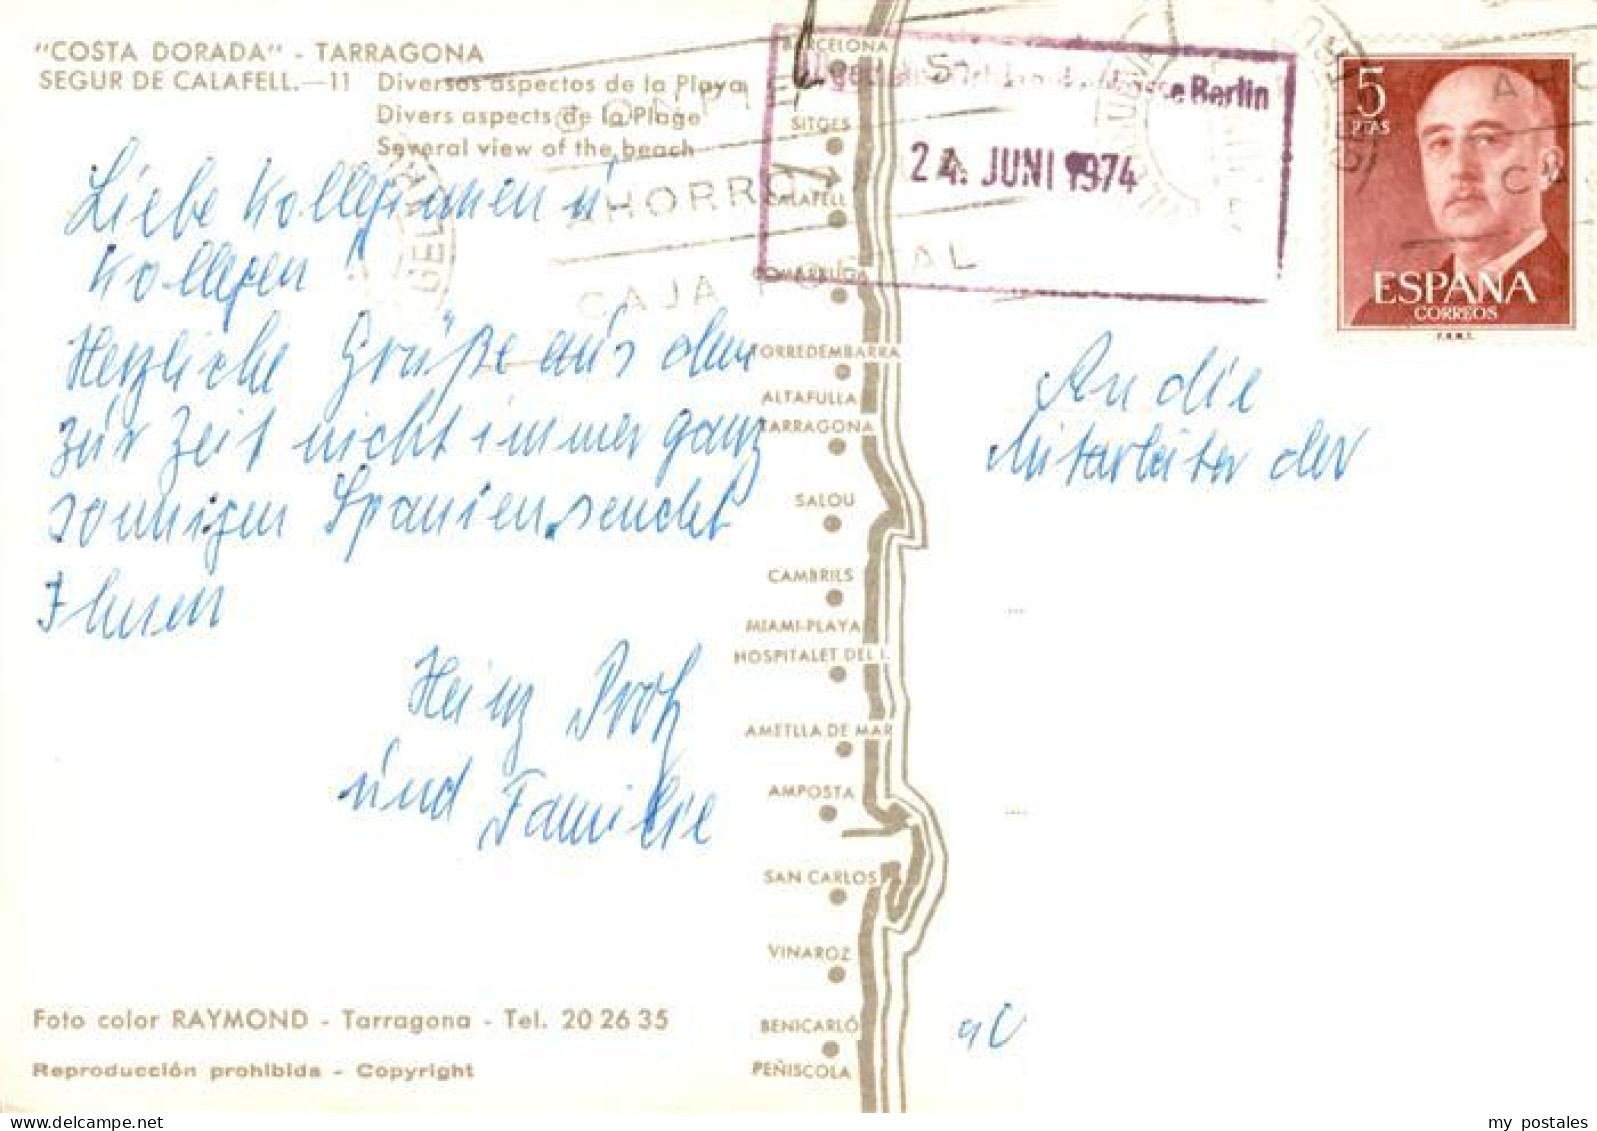 "COSTA DORADA" - TARRAGONA
SEGUR DE CALAFELL.—11 Diversos aspectos de la Playa
Divers aspects de la Plage
Several view of the beach
Liebe Kolleginnen u
Kollegen!
Herzliche Grüße aus dem
zur Zeit nicht immer ganz
sonnigen Spanien sendet
Ihnen
Heinz
und Familie
Foto color RAYMOND - Tarragona - Tel. 20 26 35
Reproducción prohibida - Copyright
BARCELONA
SITGES
CALAFELL
COMARRUGA
TORREDEMBARRA
ALTAFULLA
TARRAGONA
SALOU
CAMBRILS
MIAMI-PLAYA
HOSPITALET DEL I.
AMETLLA DE MAR
AMPOSTA
SAN CARLOS
VINAROZ
BENICARLÓ
PEÑISCOLA
AHORRO
CAJA POSTAL
Berlin
24. JUNI 1974
5
PTAS
ESPAÑA
CORREOS
F.N.M.T.
An die
Mitarbeiter der
my postales